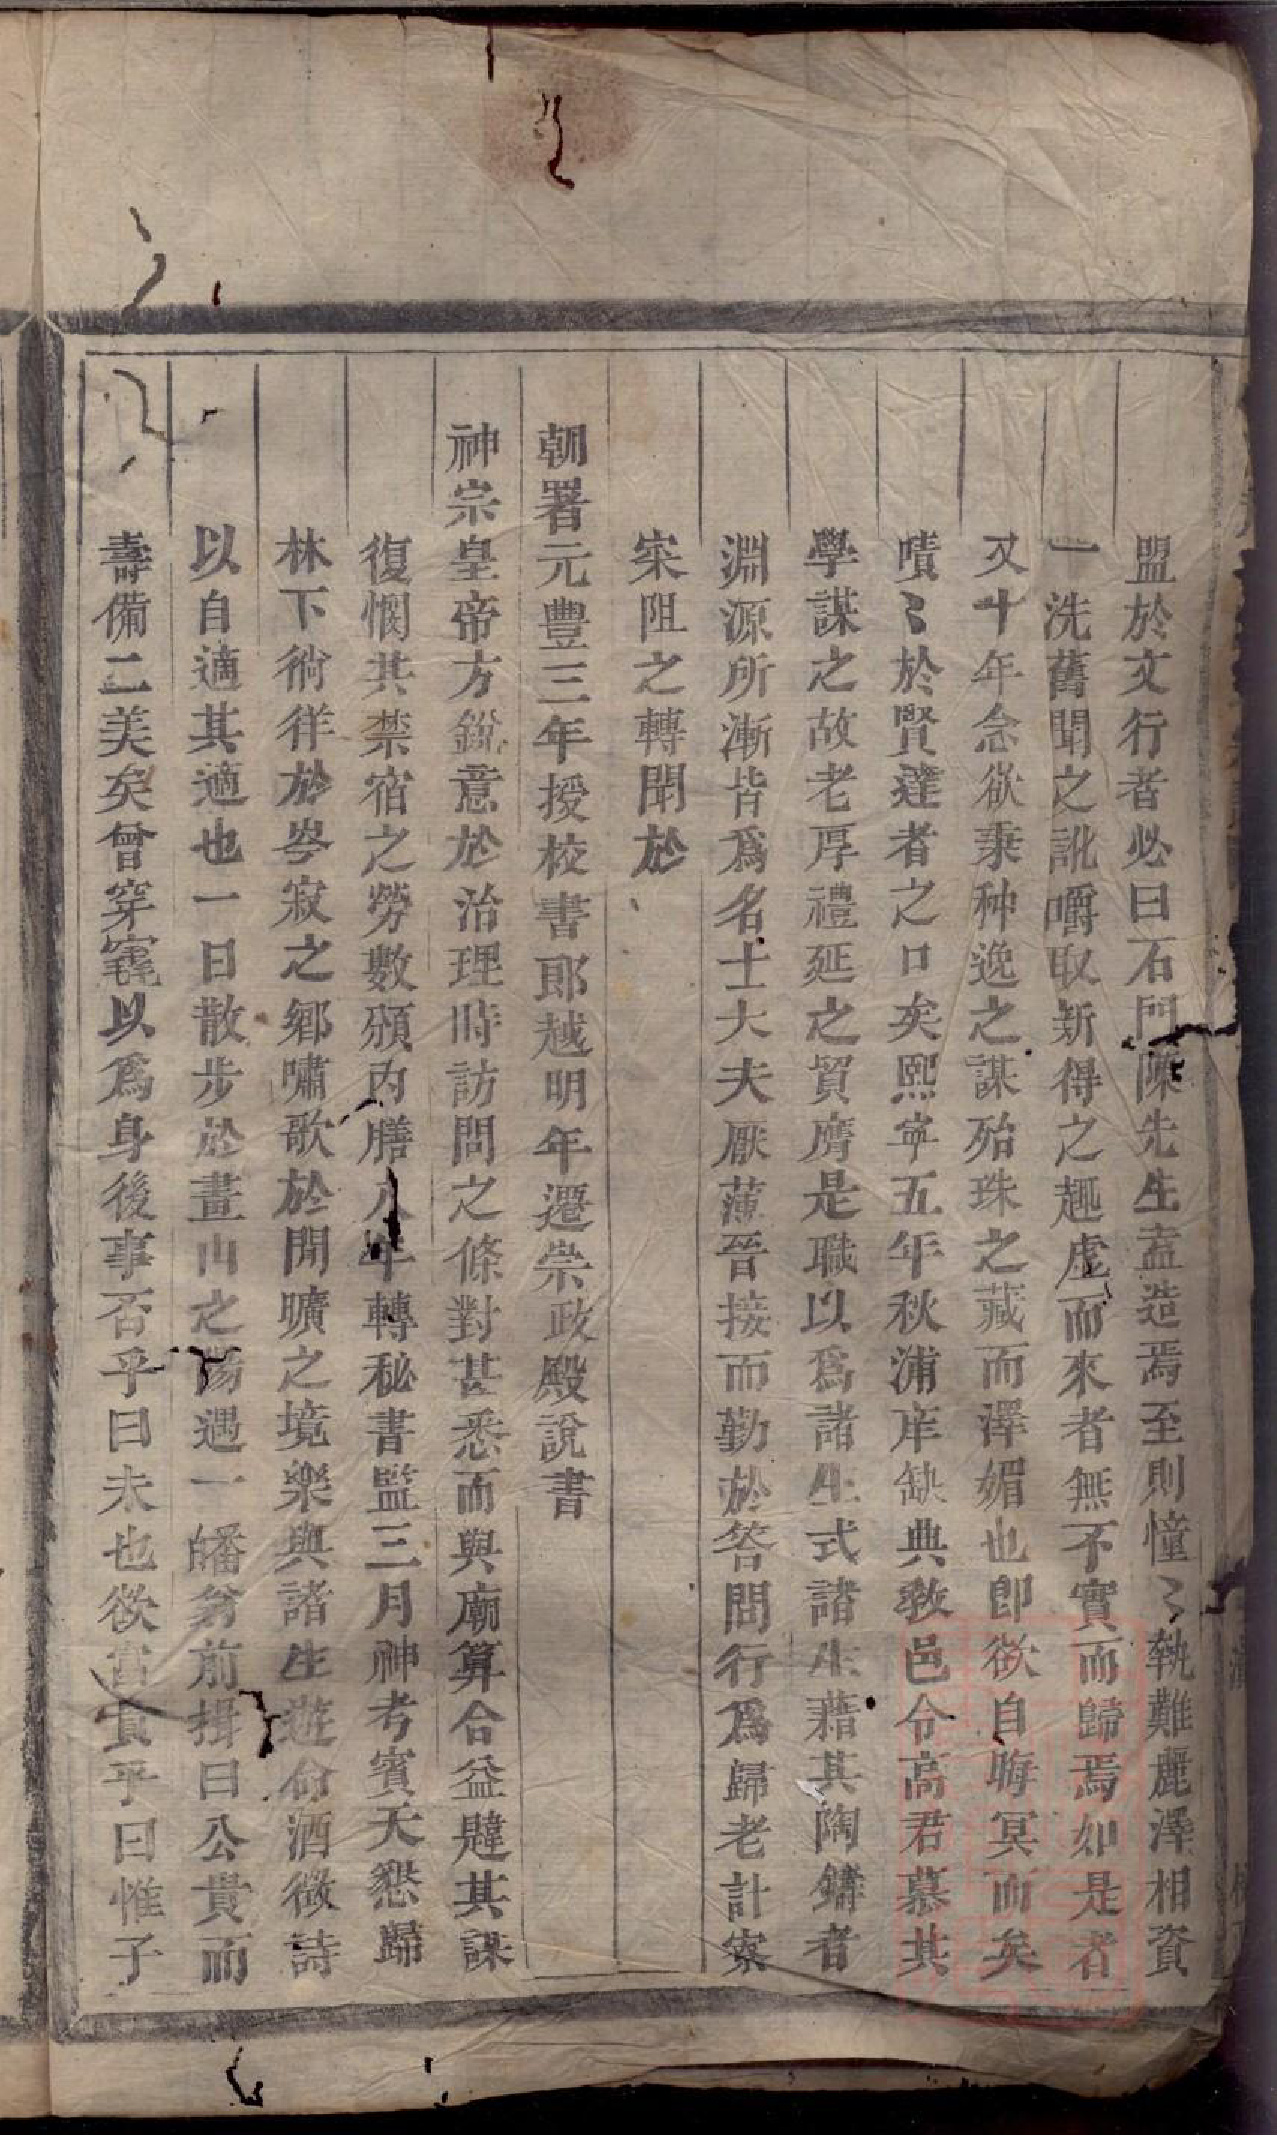 盟於文行者必曰石門陳先生盍造焉至則憧〻執難麗澤相資
一洗舊聞之訿嚼取新得之趣虛而來者無不實而歸焉如是者
又十年念欲秉种逸之謀殆珠之藏而澤媚也即欲自晦冥而矣
嘖〻於賢達者之口矣熙寧五年秋浦庠缺典教邑令高君慕其
學謀之故老厚禮延之貿膺是職以為諸生式諸生藉其陶鑄者
淵源所漸皆爲名士大夫厭薄晉接而勤於答問行爲歸老計寮
寀阻之轉聞於
朝署元豊三年授校書郎越明年遷崇政殿說書
神宗皇帝方銳意於治理時訪問之條對甚悉而與廟算合益韙其謀
復憫其禁宿之勞數頒內膳八年轉秘書監三月神考賓天懇歸
林下徜徉於岑寂之鄉嘯歌於閒曠之境樂與諸生遊命酒徵詩
以自適其適也一日散步於畫山之陽遇一皤翁前揖曰公貴而
壽備二美矣曾穿窀以爲身後事否乎曰未也欲富貴乎曰惟子